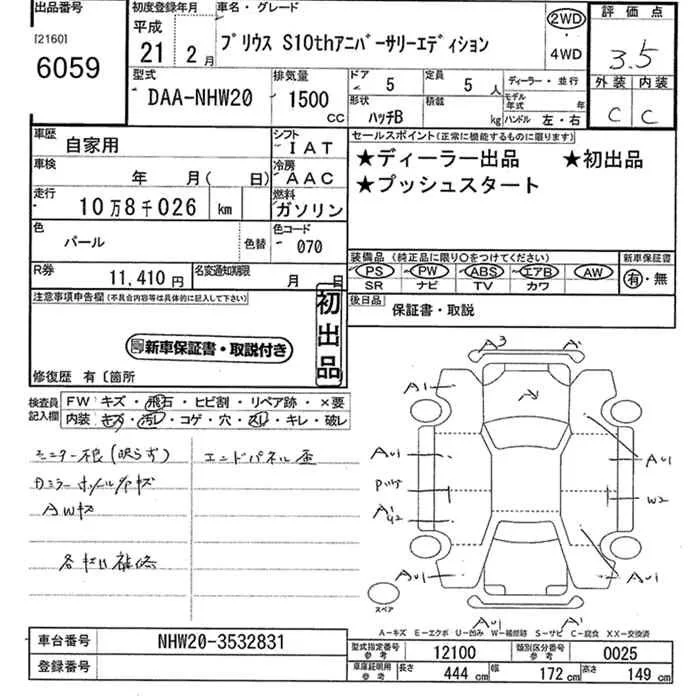 出品番号
[2160]
6059
初度登録年月
平成
21 2月
車名・グレード
プリウス S10thアニバーサリーエディション
2WD
・
4WD
評価点
3.5
外装 内装
C C
型式
DAA-NHW20
排気量
1500
CC
ドア 5
定員 5人
形状
ハッチB
積載 kg
ディーラー・並行
モデル年式 年
ハンドル 左・右
車歴
自家用
シフト
IAT
車検
年 月( 日)
冷房
AAC
走行
10万8千026 km
燃料
ガソリン
色
パール
色替
色コード
070
R券
11,410円
名変通知期限
月 日
セールスポイント(正常に機能するものに限ります)
★ディーラー出品 ★初出品
★プッシュスタート
装備品(純正品に限り○をつけてください)
PS PW ABS エアB AW
SR ナビ TV カワ
新車保証書
有・無
後日品
保証書・取説
注意事項申告欄(不具合内容等は具体的に記入して下さい)
新車保証書・取説付き
初出品
修復歴 有〔箇所
検査員記入欄
FW キズ・飛石・ヒビ割・リペア跡・×要
内装 キズ・汚レ・コゲ・穴・スレ・キレ・破レ
モニター不良(映らず)
エンドパネル歪
AWキズ
A3 A1
A1
AU1 AU1
W2
AU1 AU1
AU1 A1
スペア
A－キズ E－エクボ U－凹み W－補修跡 S－サビ C－腐食 XX－交換済
車台番号
NHW20-3532831
登録番号
型式指定番号
参考
12100
類別区分番号
参考
0025
車庫証明用
参考
長さ 444 cm
幅 172 cm
高さ 149 cm